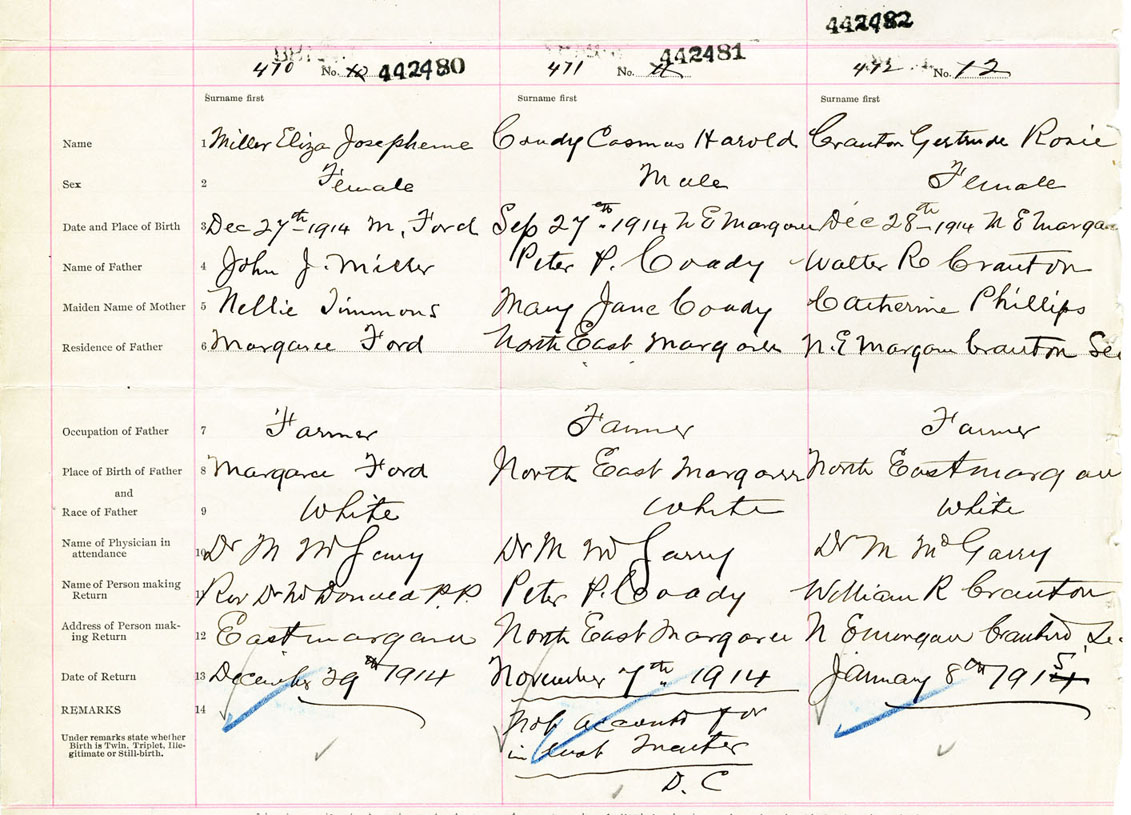 442482
470 No. 10 442480 471 No. 11 442481 472 No. 12
Surname first Surname first Surname first
Name 1 Miller Eliza Josepheme Coady Cosmas Harold Cranton Gertrude Rosie
Sex 2 Female Male Female
Date and Place of Birth 3 Dec 27th 1914 M, Ford Sep 27th 1914 N E Margaree Dec 28th 1914 N E Margaree
Name of Father 4 John J. Miller Peter P. Coady Walter R Cranton
Maiden Name of Mother 5 Nellie Timmons Mary Jane Coady Catherine Phillips
Residence of Father 6 Margaree Ford North East Margaree N. E Margaree Cranton
Occupation of Father 7 Farmer Farmer Farmer
Place of Birth of Father 8 Margaree Ford North East Margaree North East margaree
and
Race of Father 9 White White White
Name of Physician in
attendance 10 Dr M McGarry Dr M McGarry Dr M McGarry
Name of Person making
Return 11 Rev Dr McDonald P.P. Peter P. Coady William R Cranton
Address of Person mak-
ing Return 12 East margaree North East Margaree N E margaree
Date of Return 13 December 29th 1914 November 7th 1914 January 8th 1915
REMARKS 14 Not accounted for
in last
D. C
Under remarks state whether
Birth is Twin, Triplet, Ille-
gitimate or Still-birth.